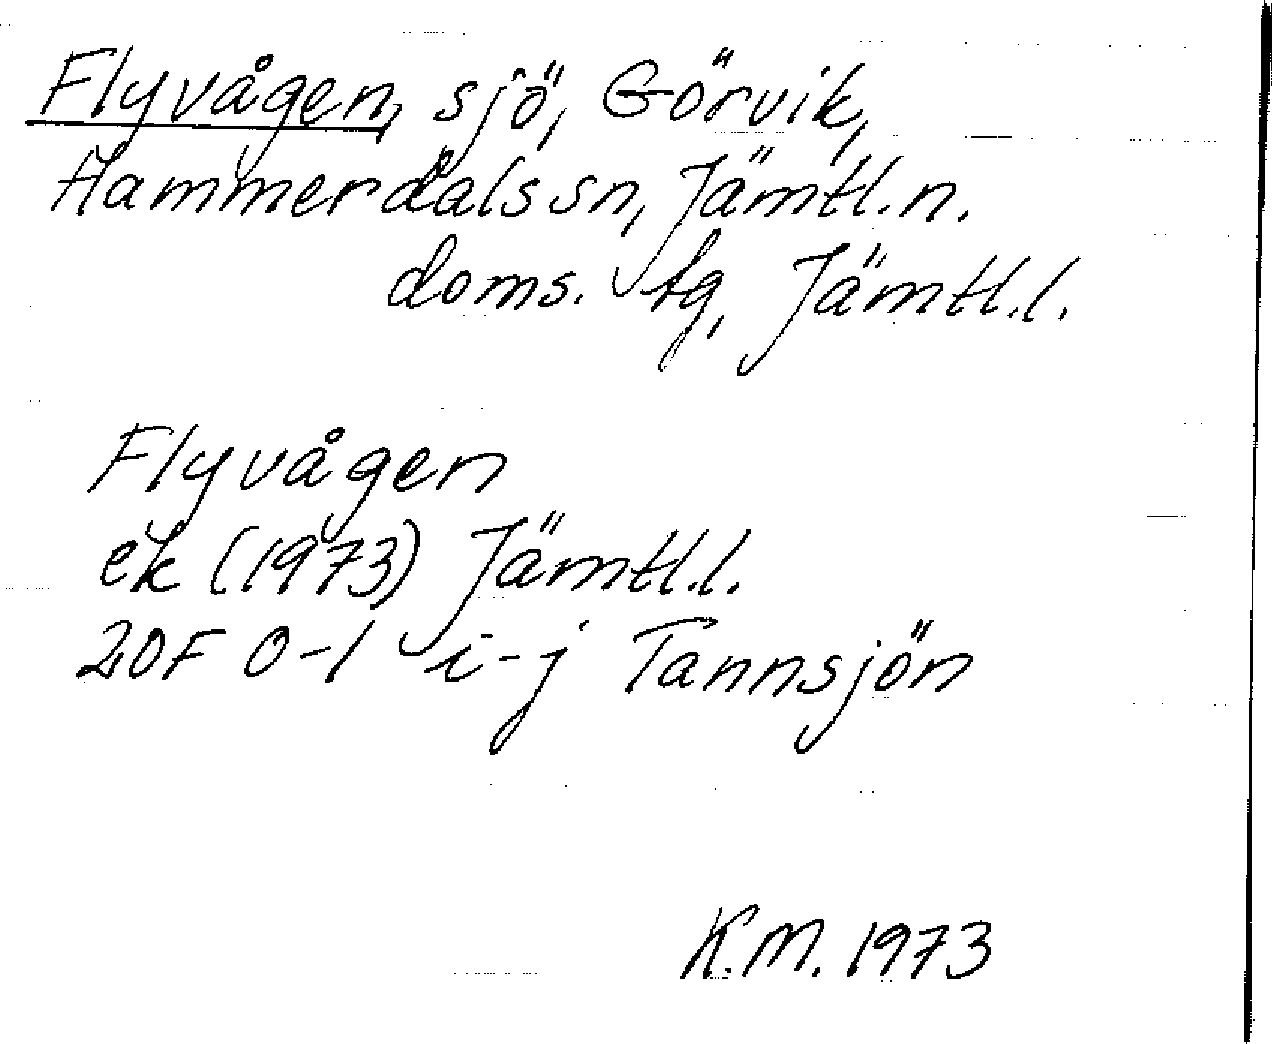 Flyvågen, sjö, Görvik,
Hammerdals sn, Jämtl. n.
doms. tg, Jämtl. l.
Flyvågen
ek (1973) Jämtl. l.
20F 0-1 i-j Tannsjön
K.M. 1973